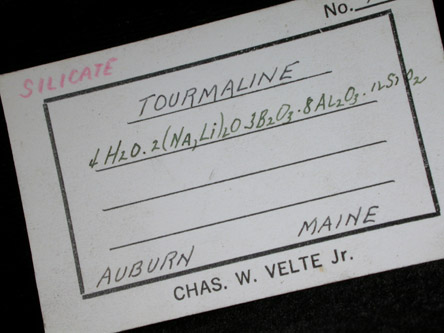 No.
SILICATE
TOURMALINE
4 H2O. 2(NA,Li)2O 3B2O3. 8 AL2O3. 12 SiO2
AUBURN MAINE
CHAS. W. VELTE Jr.